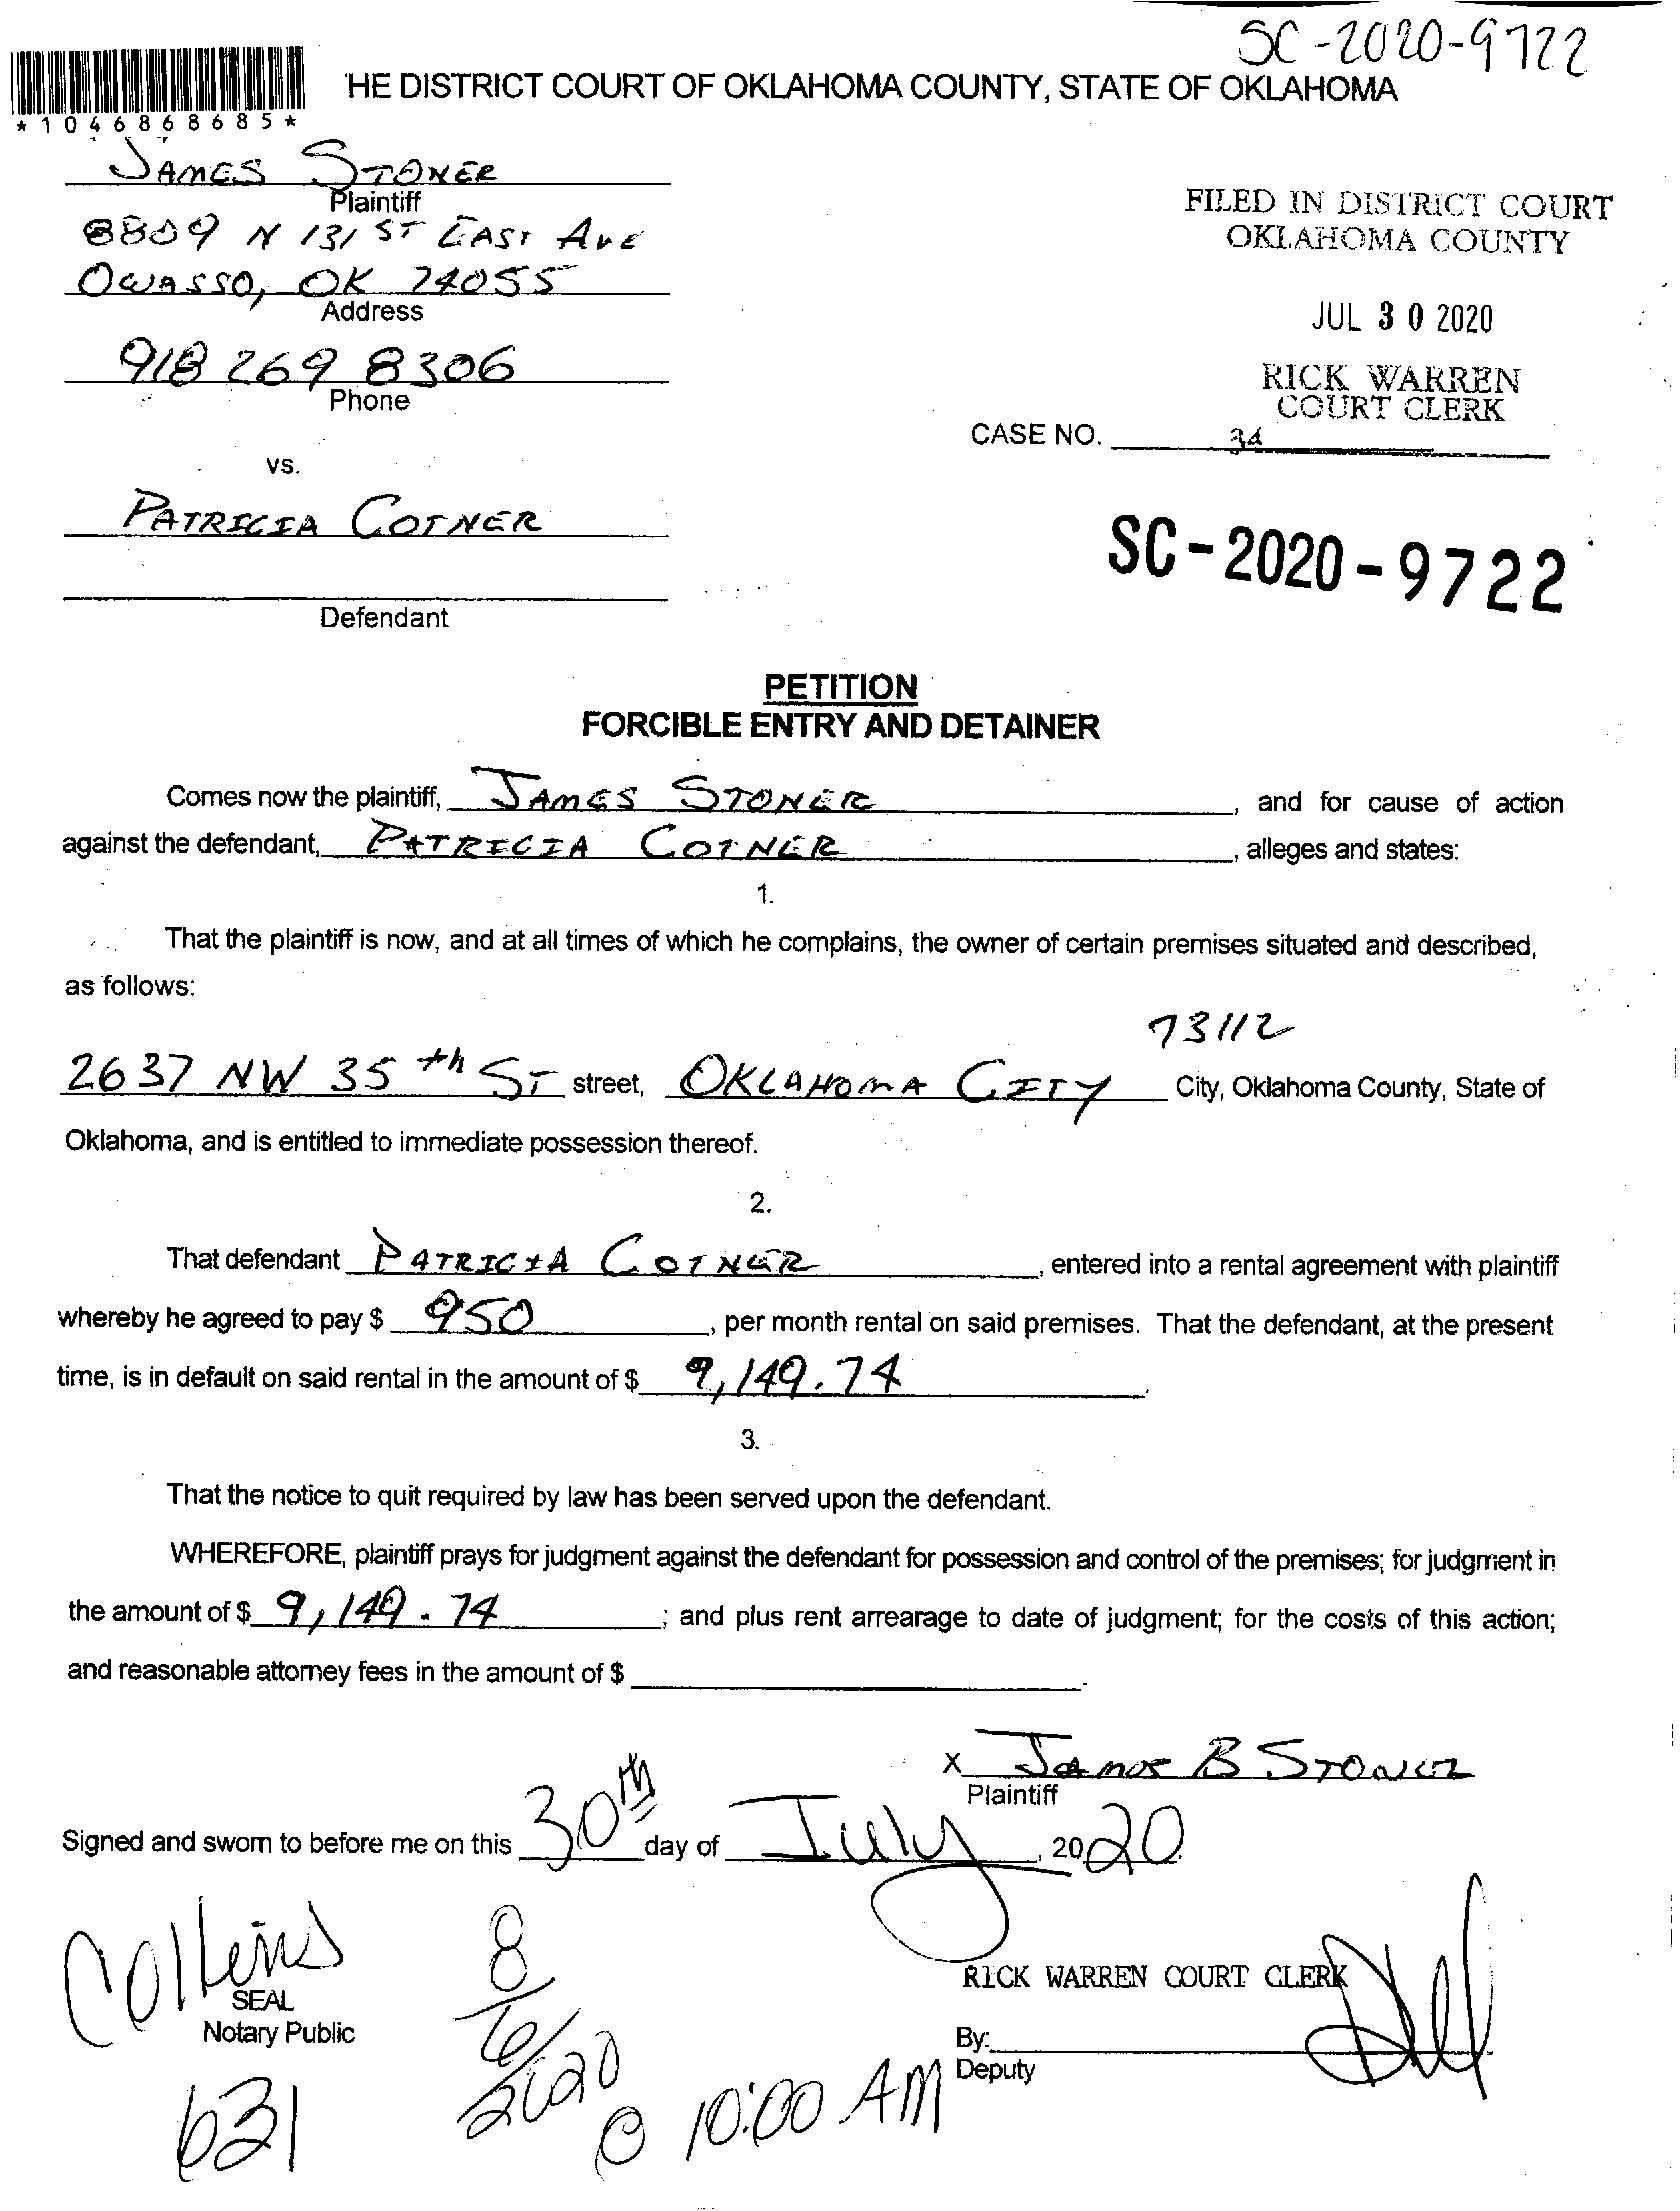 SC-2020-9722
*1046868685*
HE DISTRICT COURT OF OKLAHOMA COUNTY, STATE OF OKLAHOMA
JAMES STONER
Plaintiff
8809 N 131 ST EAST AVE
OWASSO, OK 74055
Address
918 269 8306
Phone
FILED IN DISTRICT COURT
OKLAHOMA COUNTY
JUL 30 2020
RICK WARREN
COURT CLERK
CASE NO.
34
vs.
PATRICIA COTNER
Defendant
SC-2020-9722
PETITION
FORCIBLE ENTRY AND DETAINER
Comes now the plaintiff, JAMES STONER, and for cause of action
against the defendant, PATRICIA COTNER, alleges and states:
1.
That the plaintiff is now, and at all times of which he complains, the owner of certain premises situated and described,
as follows:
73112
2637 NW 35th ST street, OKLAHOMA CITY City, Oklahoma County, State of
Oklahoma, and is entitled to immediate possession thereof.
2.
That defendant PATRICIA COTNER, entered into a rental agreement with plaintiff
whereby he agreed to pay $ 950, per month rental on said premises. That the defendant, at the present
time, is in default on said rental in the amount of $ 9,149.74.
3.
That the notice to quit required by law has been served upon the defendant.
WHEREFORE, plaintiff prays for judgment against the defendant for possession and control of the premises; for judgment in
the amount of $ 9,149.74; and plus rent arrearage to date of judgment; for the costs of this action;
and reasonable attorney fees in the amount of $ .
X James B Stoner
Plaintiff
Signed and sworn to before me on this 30th day of July, 2020.
Collins
SEAL
Notary Public
631
8/6/2020
@ 10:00 AM
RICK WARREN COURT CLERK
By:
Deputy